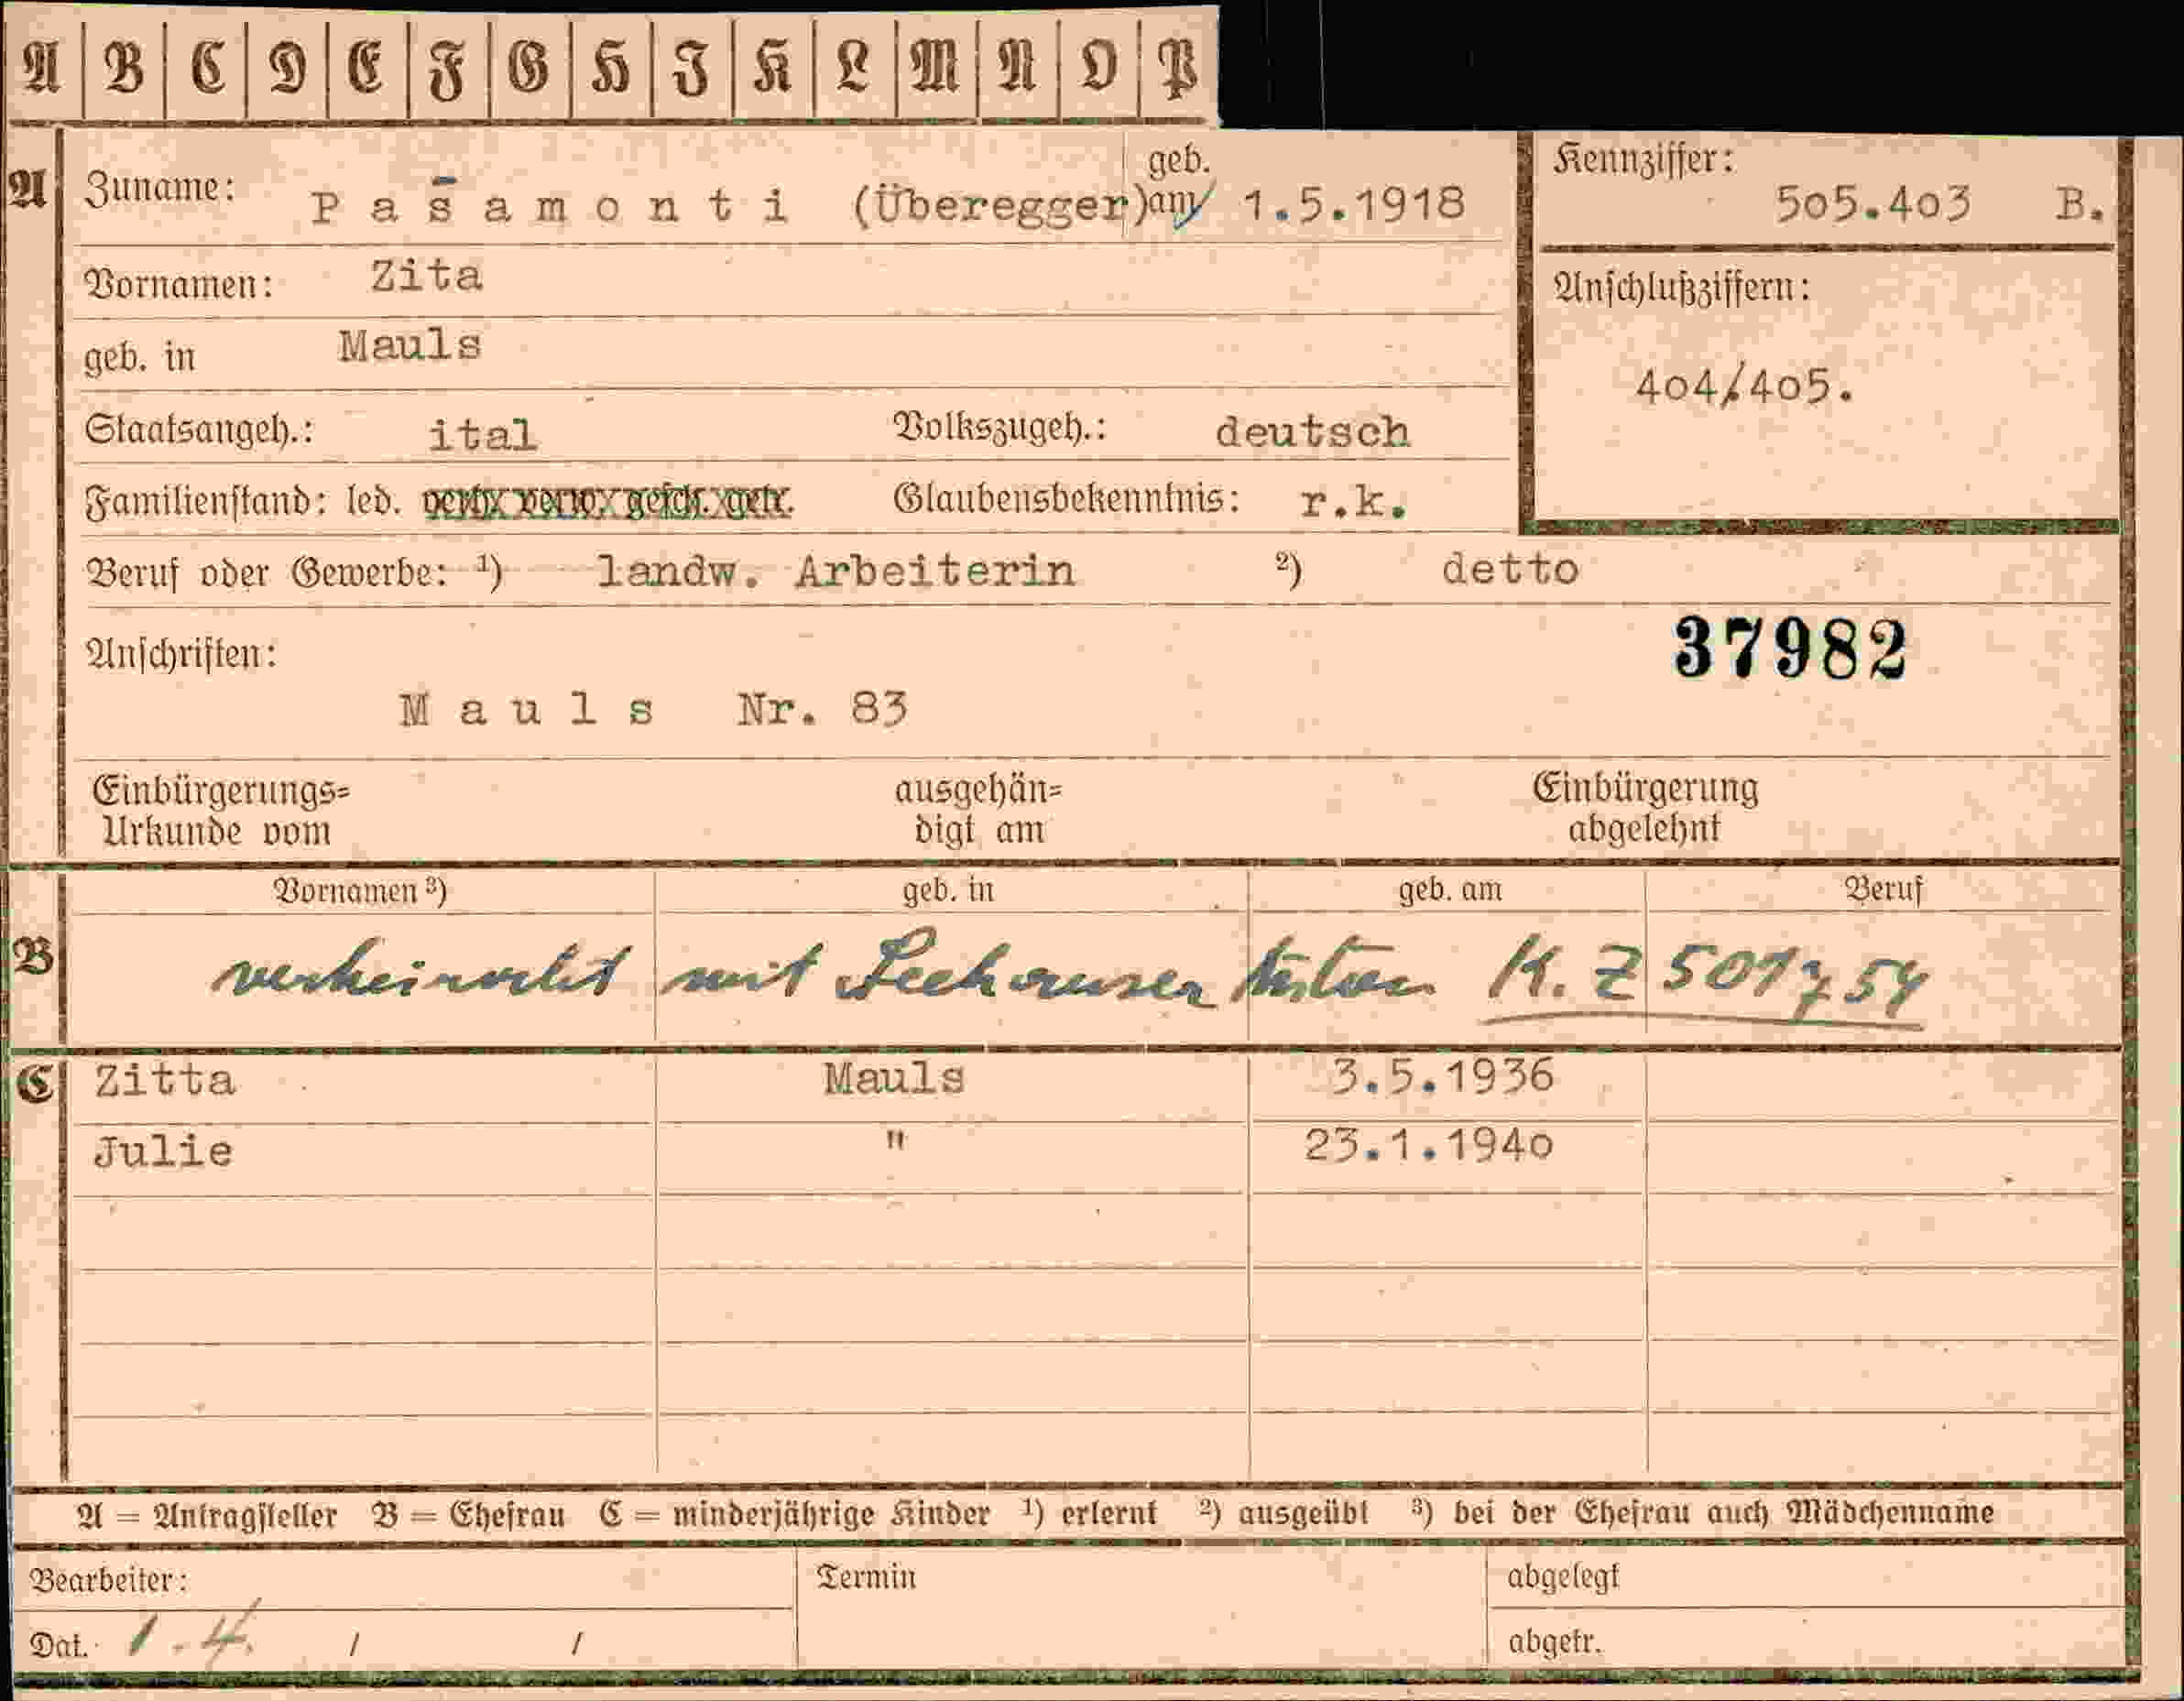 A B C D E F G H I K L M N O P
A Zuname: Pas̄amonti (Überegger) geb. am 1.5.1918
Kennziffer: 505.403 B.
Vornamen: Zita
Anschlußziffern:
geb. in Mauls
404/405.
Staatsangeh.: ital Volkszugeh.: deutsch
Familienstand: led. verh. verw. gesch. getr. Glaubensbekenntnis: r.k.
Beruf oder Gewerbe: ¹) landw. Arbeiterin ²) detto
37982
Anschriften:
Mauls Nr. 83
Einbürgerungs= ausgehän= Einbürgerung
Urkunde vom digt am abgelehnt
Vornamen ³) geb. in geb. am Beruf
B verheiratet mit Seehauser K. Z 501754
C Zitta Mauls 3.5.1936
Julie " 23.1.1940
A = Antragsteller B = Ehefrau C = minderjährige Kinder ¹) erlernt ²) ausgeübt ³) bei der Ehefrau auch Mädchenname
Bearbeiter: Termin abgelegt
Dat. 1.4. / / abgetr.